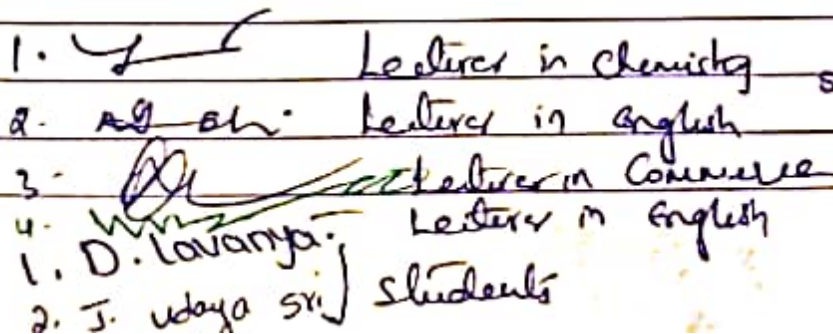 1. Lecturer in Chemistry
2. Lecturer in English
3. Lecturer in Commerce
4. Lecturer in English
1. D. Lavanya.
2. J. udaya sri } students